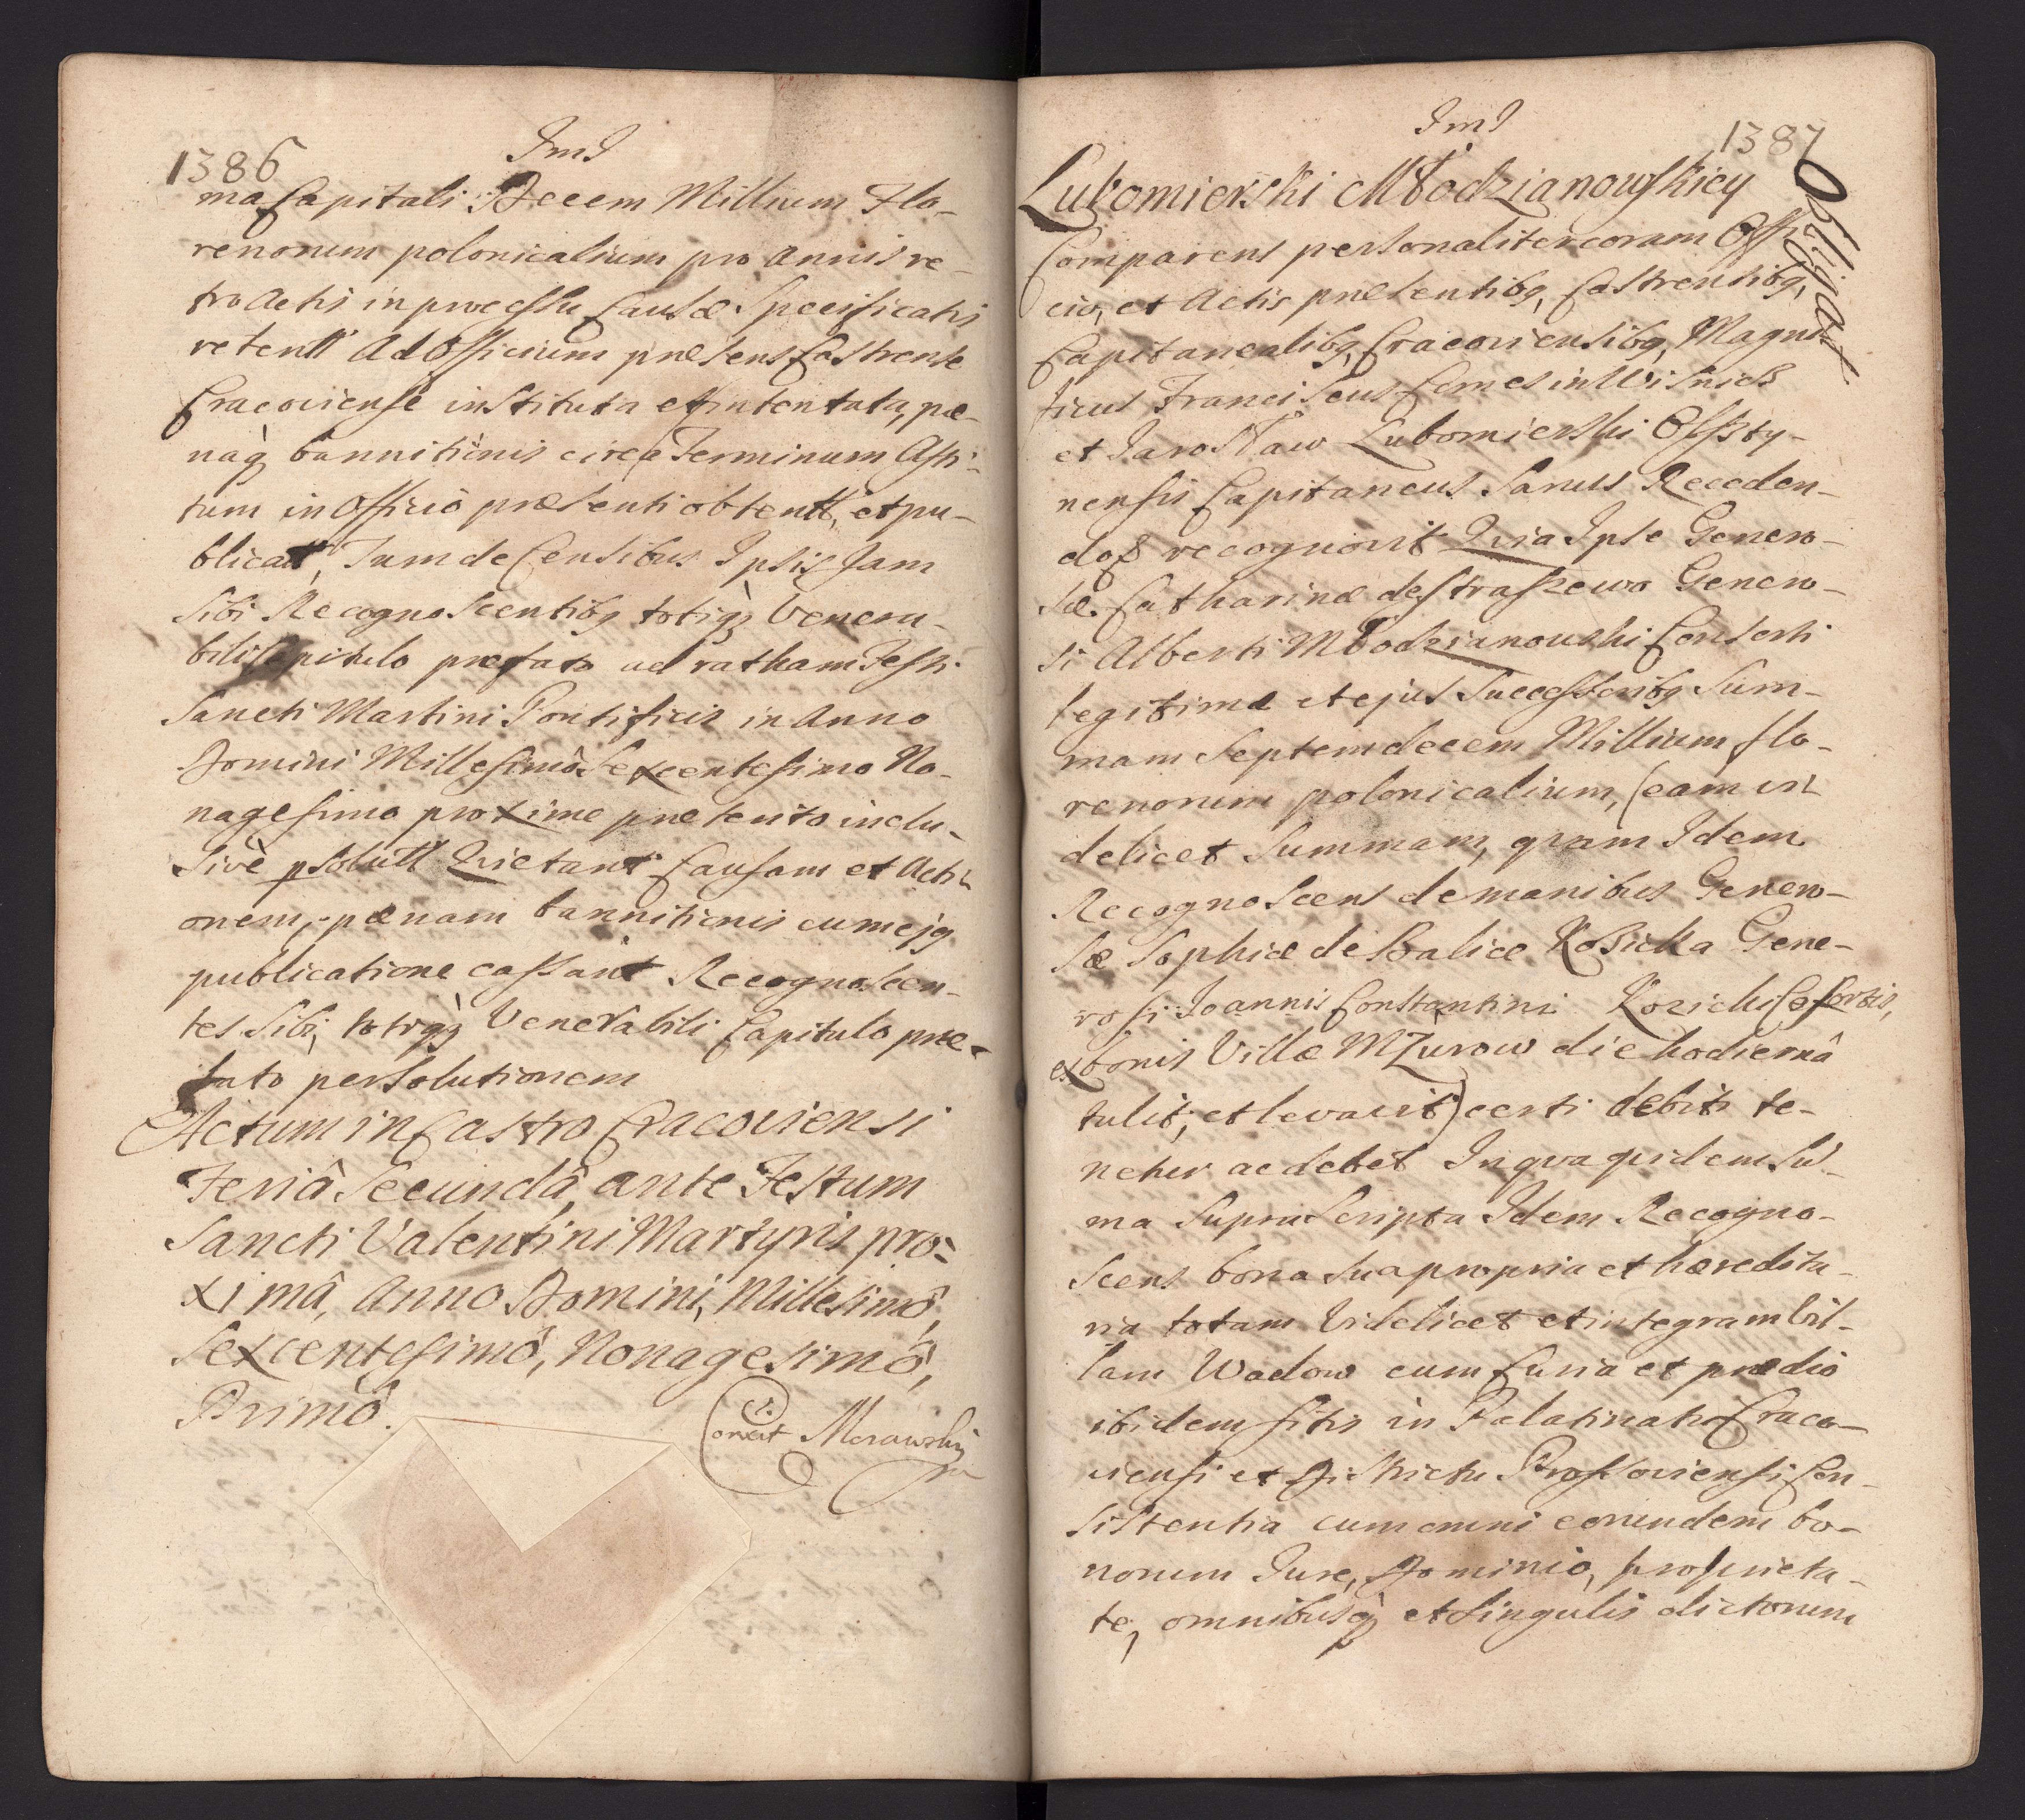 1386
JmJ
ma Capitali Decem Millium Flo-
renorum polonicalium pro annis re-
tro Actis in processu Causæ Specificatis
retent Ad Officium præsens Castrense
Cracoviense instituta et intentata, pæ-
naq bannitionis circa Terminum Affi-
tum in Officio præsenti obtentt, et pu-
blicatt, Tum de Censibus Ipsis Jam
sibi Recognoscentibq totiq Venera-
bili Capitulo præfato ad ratham Festi
Sancti Martini Pontificis in Anno
Domini Millesimo Sexcentesimo No-
nagesimo proxime præterito inclu-
sive psolutt Quietant Causam et Acti-
onem, pænam bannitionis cum ejq
publicatione cassant Recognoscen-
tes sibi, totiqq Venerabili Capitulo præ-
fato persolutionem
Actum in Castro Cracoviensi
Feriâ Secundâ, ante Festum
Sancti Valentini Martyris pro=
ximâ, Anno Domini, Millesimô,
Sexcentesimô, Nonagesimô,
Primô.
JmJ
1387
Obligat
Lubomierski Młodzianowskiey
Comparens personaliter coram Offi-
cio, et Actis præsentibq, Castrensibq,
Capitanealibq, Cracoviensibq, Magni-
ficus Franciscus Comes in Wisnicz
et Jarosław Lubomierski Olszty-
nensis Capitaneus Sanus Receden-
doq recognovit Quia Ipse Genero-
sæ Catharinæ de Straszewo Genero-
si Alberti Młodzianowski Consorti
legitimæ et ejus Successoribq Sum-
mam Septemdecem Millium flo-
renorum polonicalium, (eam vi-
delicet Summam, quam Idem
Recognoscens de manibus Genero-
sæ Sophiæ de Balice Kozicka Gene-
rosi Joannis Constantini Kozicki Consortis,
ex bonis Villæ Mżurow die hodiernâ
tulit, et levavit) certi debiti te-
netur ac debet In qua quidem Su-
ma Supra Scripta Idem Recogno-
scens bona sua propria et hæredita-
ria totam Videlicet et integram Vil-
lam Wadow cum Curia et prædio
ibidem sitis in Palatinatu Craco-
viensi et Districtu Prossoviensi Con-
sistentia cum omni eorundem bo-
norum Jure, Dominio, proprieta-
te, omnibusq et singulis dictorum